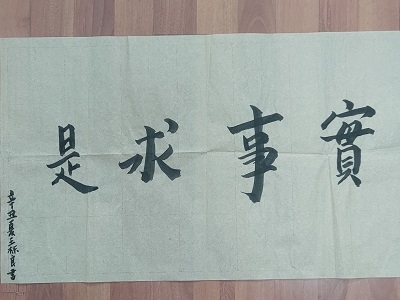 實事求是
辛丑夏王禄良書